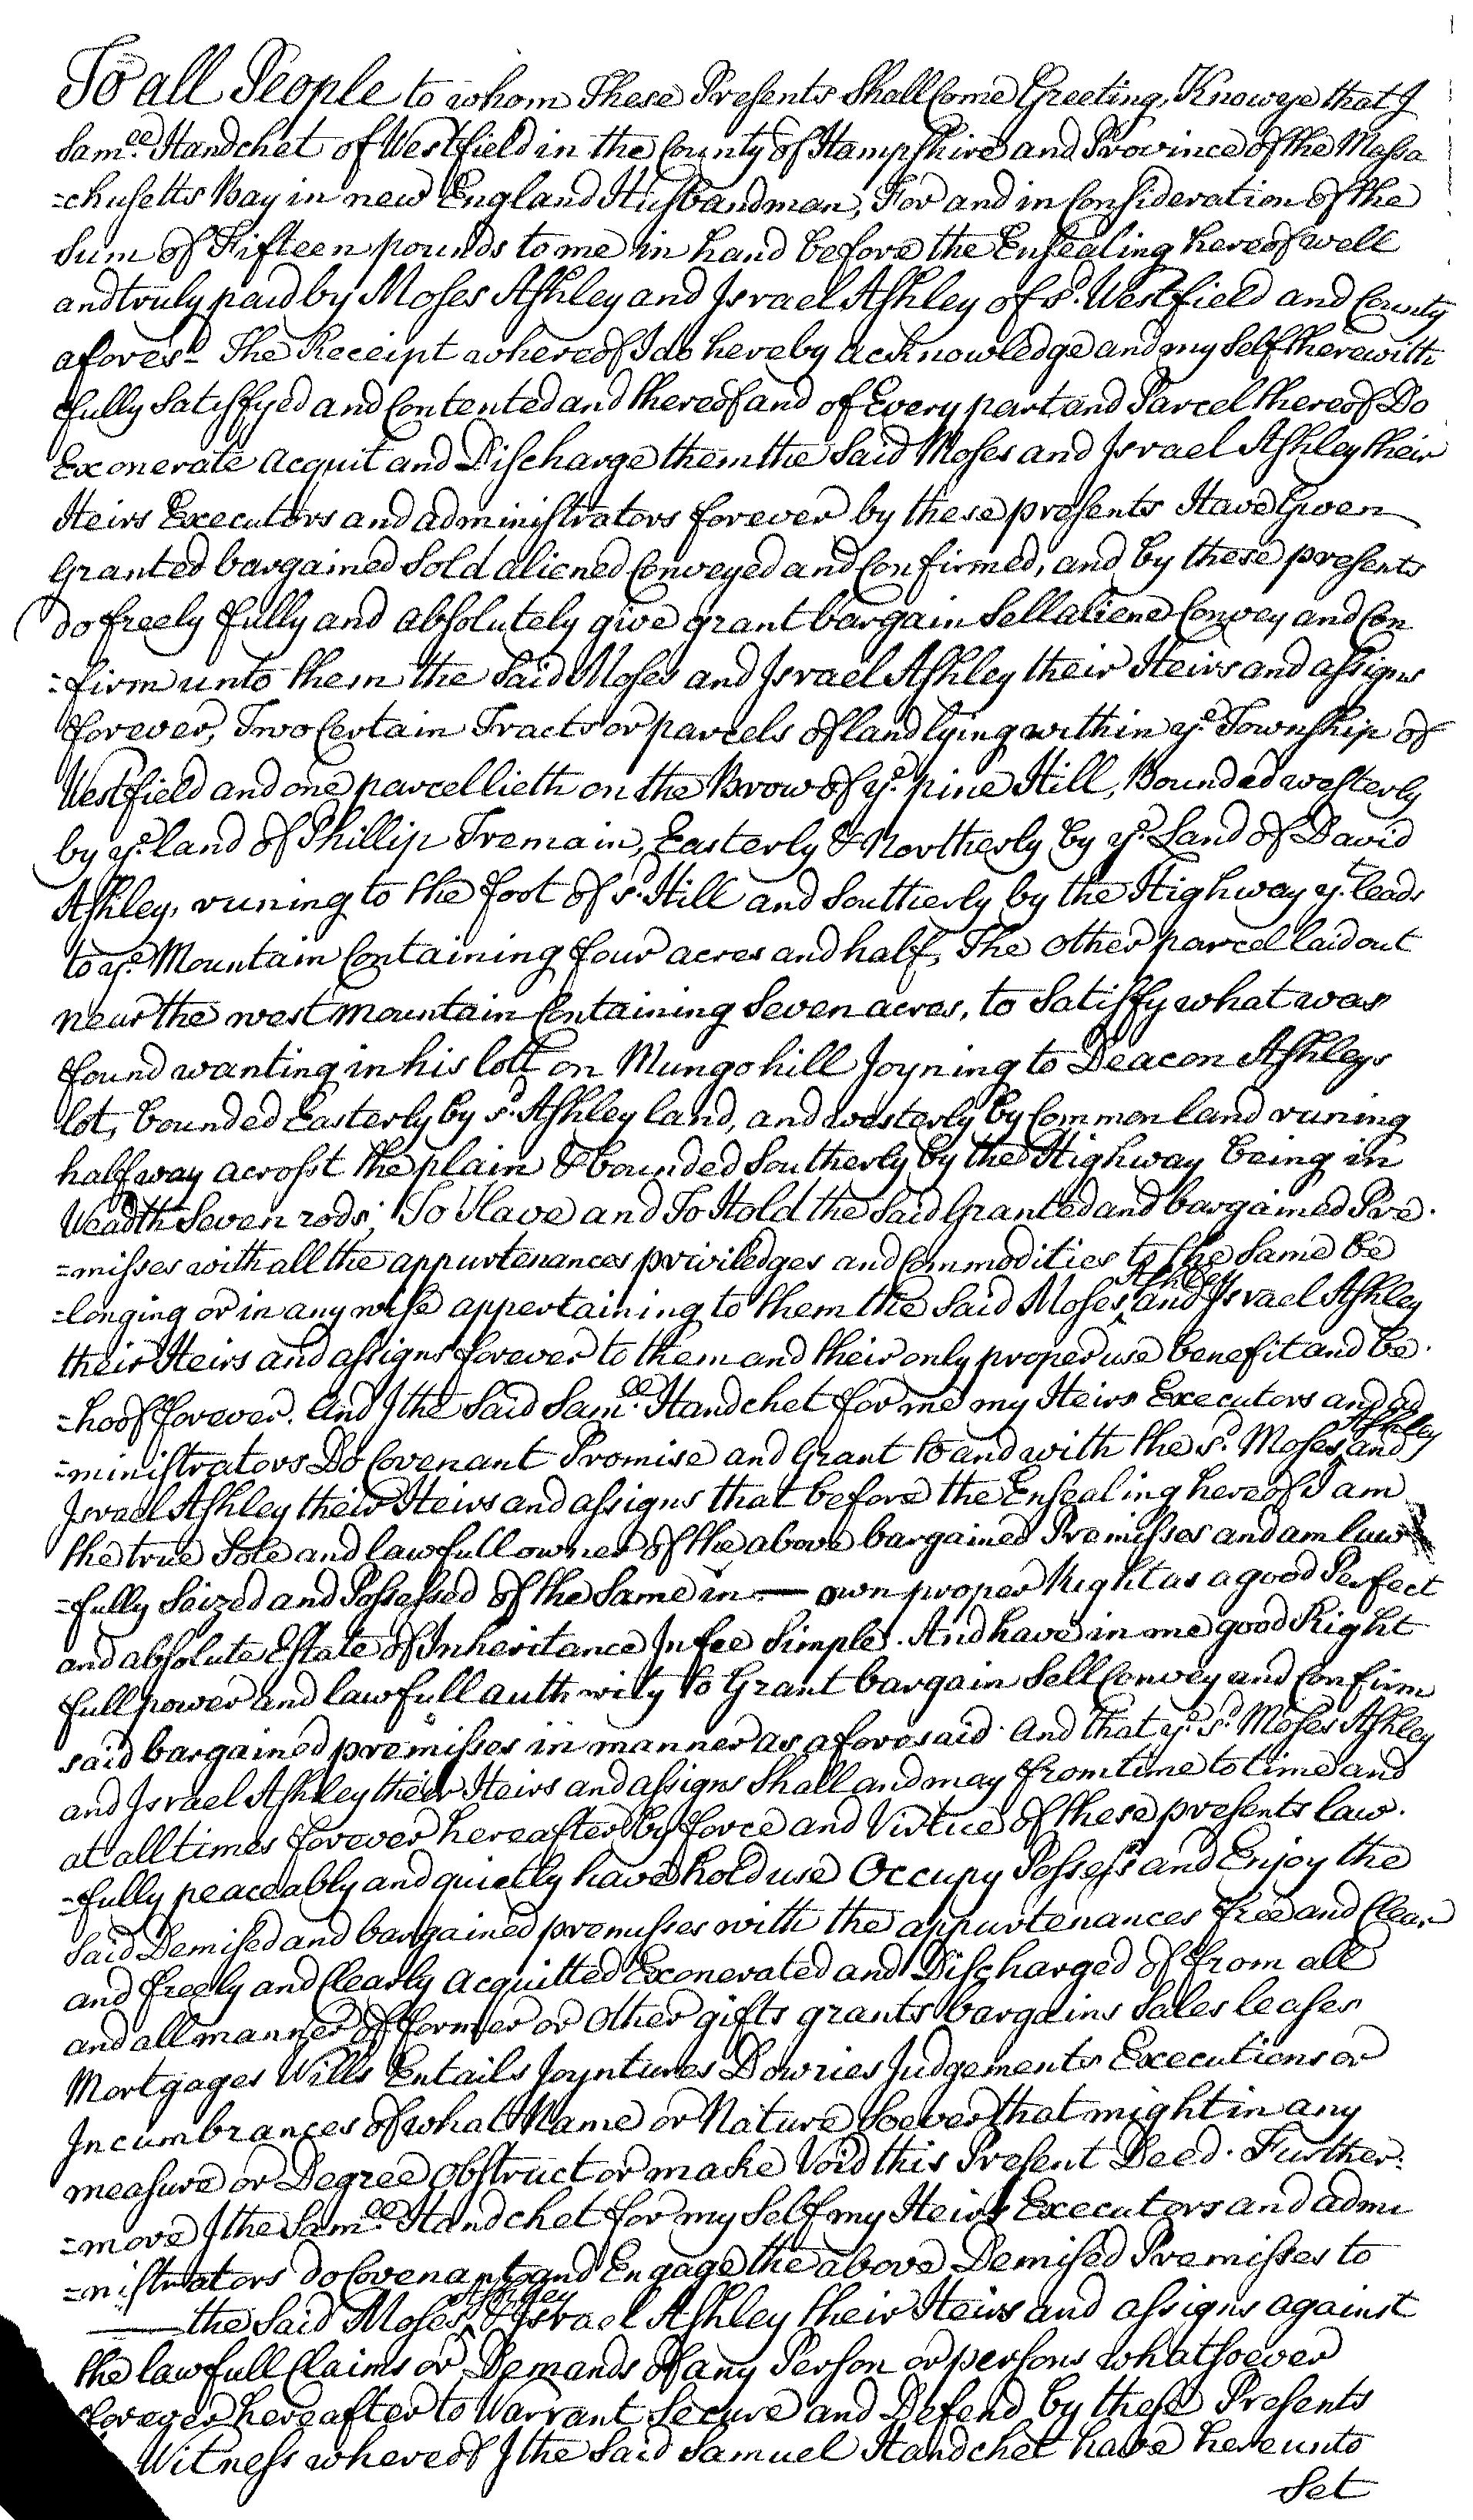 To all People to whom These Presents Shall Come Greeting, Know ye that I
Samll. Handchet of Westfield in the County of Hampshire and Province of the Massa
=chusetts Bay in new England Husbandman, For and in Consideration of the
Sum of Fifteen pounds to me in hand before the Ensealing hereof well
and truly paid by Moses Ashley and Israel Ashley of sd. Westfield and County
aforesd. The Receipt whereof I do hereby acknowledge and my Self therewith
fully Satisfyed and Contented and thereof and of Every part and Parcel thereof Do
Exonerate acquit and Discharge them the Said Moses and Israel Ashley their
Heirs Executors and administrators forever by these presents Have Given
Granted bargained Sold aliened Conveyed and Confirmed, and by these presents
do freely fully and absolutely give grant bargain Sell aliene Convey and Con
=firm unto them the Said Moses and Israel Ashley their Heirs and assigns
forever, Two Certain Tracts or parcels of land lying within ye. Township of
Westfield and one parcel lieth on the Brow of ye. pine Hill, Bounded westerly
by ye. land of Phillip Tremain, Easterly & Northerly by ye. Land of David
Ashley, runing to the foot of sd. Hill and Southerly by the Highway yt. leads
to ye. Mountain Containing four acres and half, The other parcel laid out
near the west mountain Containing Seven acres, to Satisfy what was
found wanting in his lott on Mungo hill Joyning to Deacon Ashleys
lot, bounded Easterly by sd. Ashley land, and westerly by Common land runing
half way acrosst the plain & bounded Southerly by the Highway being in
Weadth Seven rods; To Have and To Hold the Said Granted and bargained Pre.
=misses with all the appurtenances priviledges and Commodities to the Same be
=longing or in any wise appertaining to them the Said Moses Ashley and Israel Ashley
their Heirs and assigns forever to them and their only proper use benefit and be.
=hoof forever. And I the Said Samll. Handchet for me my Heirs Executors and ad
=ministrators Do Covenant Promise and Grant to and with the sd. Moses Ashley and
Israel Ashley their Heirs and assigns that before the Ensealing hereof I am
the true Sole and lawfull owner of the above bargained Premisses and am law
=fully Seized and Possessed of the Same in — own proper Right as a good Perfect
and absolute Estate of Inheritance In fee Simple. And have in me good Right
full power and lawfull authority to Grant bargain Sell Convey and Confirm
said bargained premisses in manner as aforesaid. And that ye. sd. Moses Ashley
and Israel Ashley their Heirs and assigns Shall and may from time to time and
at all times forever hereafter by force and Virtue of these presents law.
=fully peaceably and quietly have hold use Occupy Possess and Enjoy the
Said Demised and bargained premisses with the appurtenances free and Clear
and freely and Clearly acquitted Exonerated and Discharged of from all
and all manner of former or other gifts grants bargains Sales leases
Mortgages Wills Entails Joyntures Dowries Judgements Executions or
Incumbrances of what Name or Nature Soever that might in any
measure or Degree obstruct or make Void this Present Deed. Further.
=more I the Samll. Handchet for my Self my Heirs Executors and admi
=nistrators do Covenant and Engage the above Demised Premisses to
— the Said Moses Ashley & Israel Ashley their Heirs and assigns against
the lawfull Claims or Demands of any Person or persons whatsoever
forever hereafter to Warrant Secure and Defend by these Presents
Witness whereof I the Said Samuel Handchet have hereunto
Set